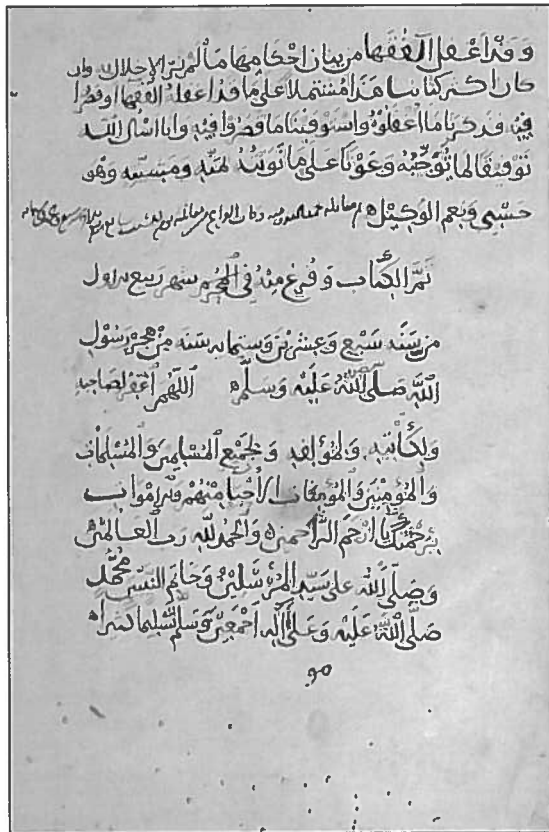 وقد اغفل الفقها من بيان احكامها ما لم يجز الاخلال وان
كان اكثر كتابنا هذا مشتملا على ما قد اغفله الفقها او قصروا
فيه فذكرنا ما اغفلوه واستوفينا ما قصروا فيه وانا اسال الله
توفيقا لما توخيته وعونا على ما نويته بمنه ومشيته وهو
حسبي ونعم الوكيل
تم الكتاب وفرغ منه في شهر ربيع الاول
من سنه سبع وعشرين وستمايه سنه من هجره رسول
الله صلى الله عليه وسلم اللهم اغفر لصاحبه
ولكاتبه ولمؤلفه ولجميع المسلمين والمسلمات
والمؤمنين والمؤمنات الاحيا منهم والاموات
برحمتك يا ارحم الراحمين والحمد لله رب العالمين
وصلى الله على سيد المرسلين وخاتم النبيين محمد
صلى الله عليه وعلى آله اجمعين وسلم تسليما كثيرا